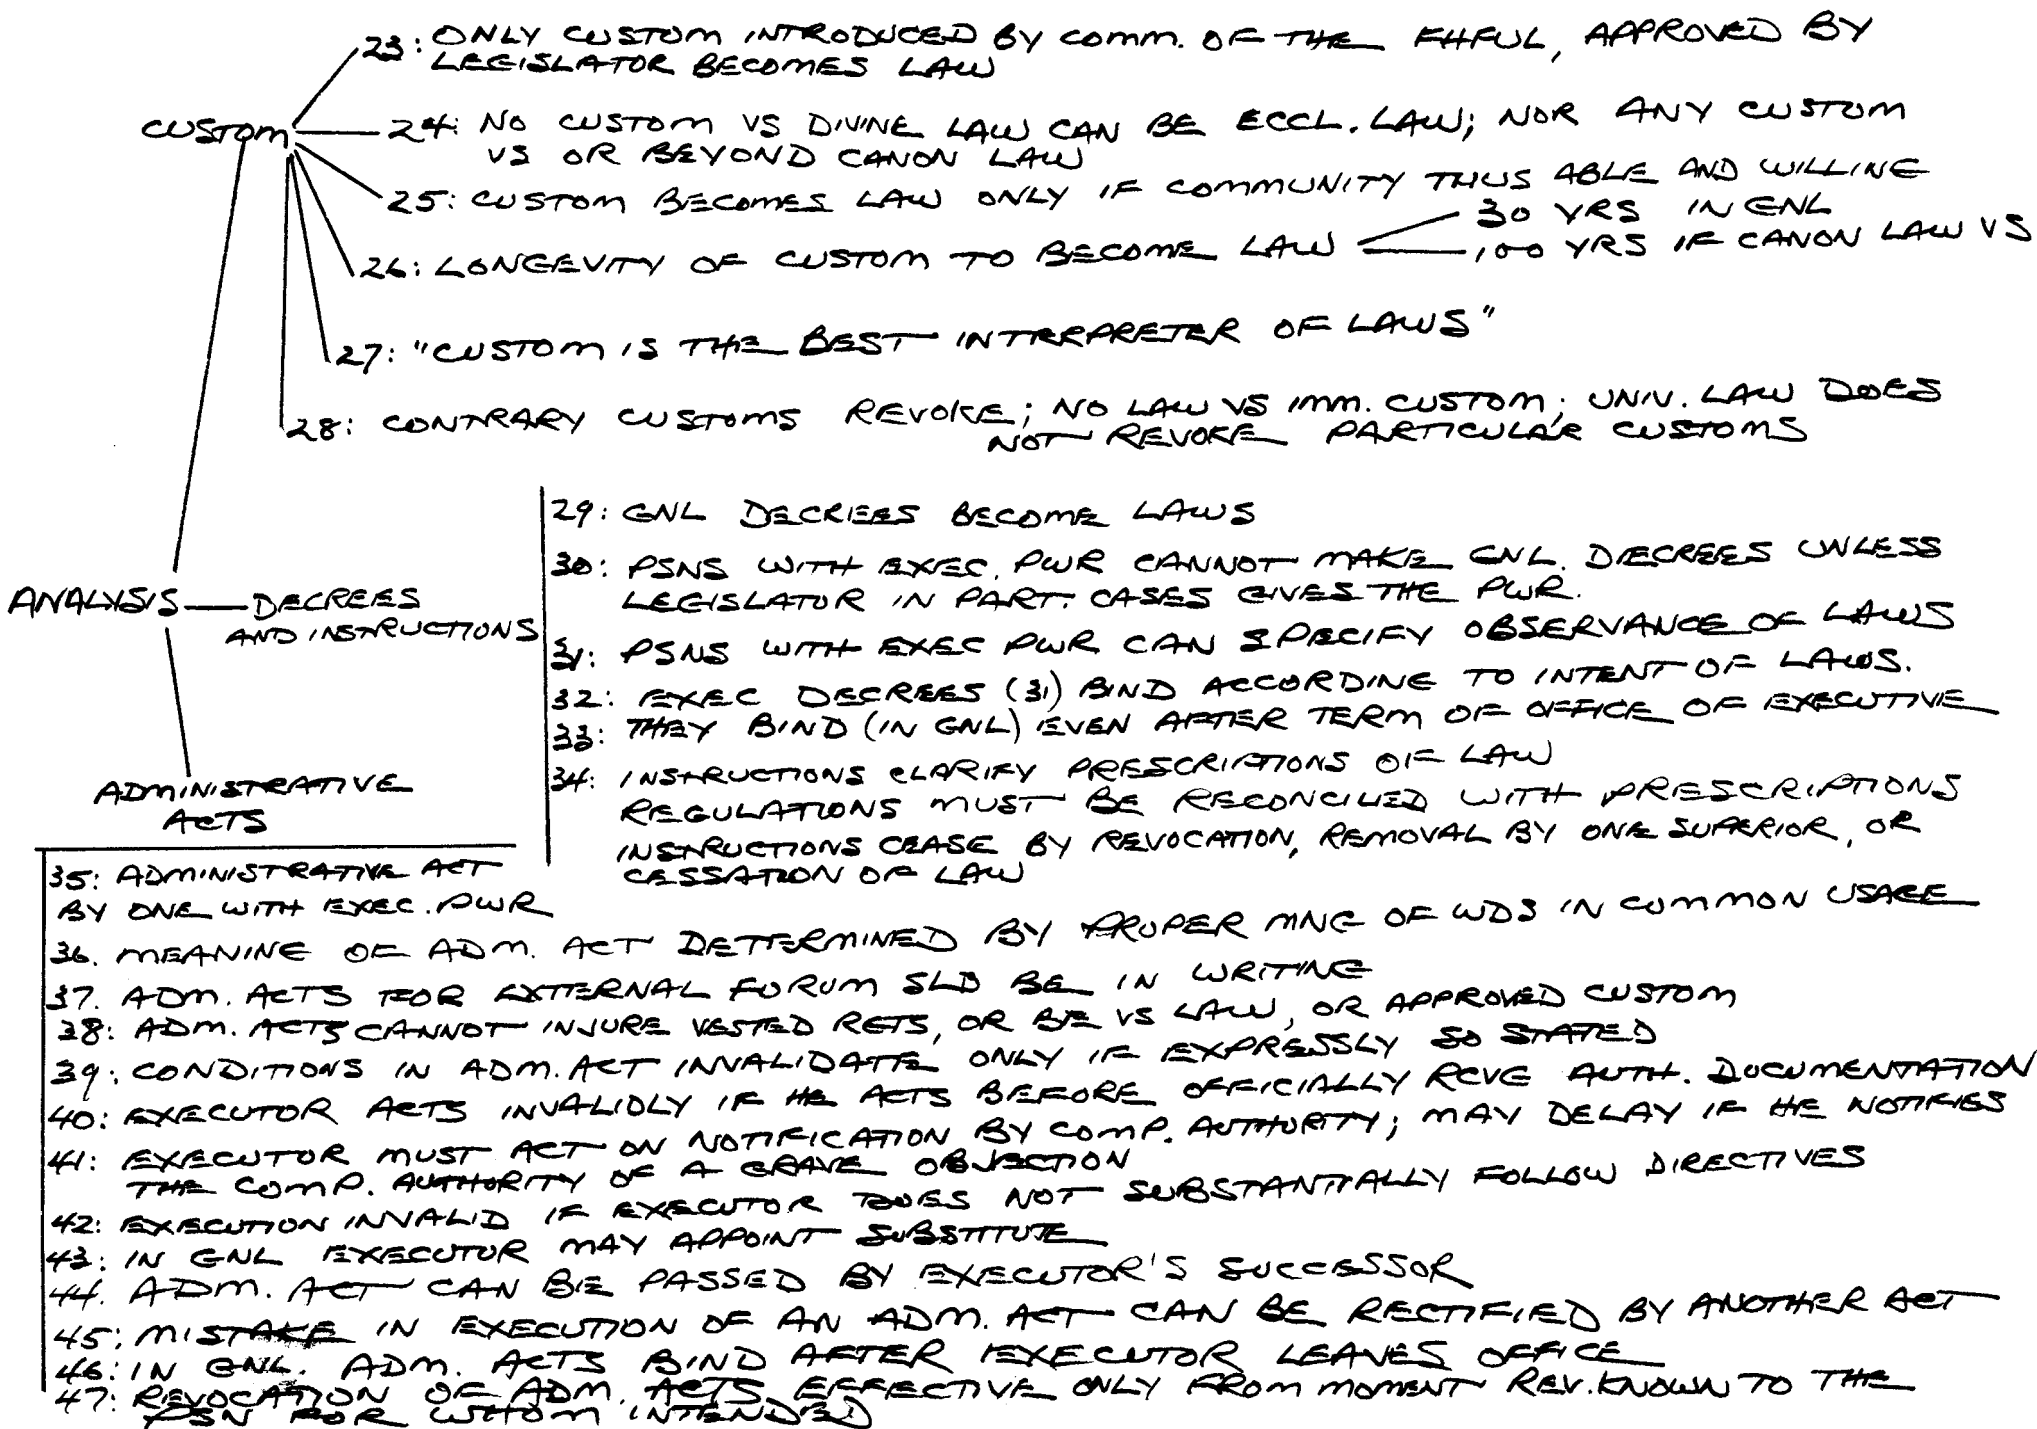 23: ONLY CUSTOM INTRODUCED BY COMM. OF THE FHFUL, APPROVED BY
LEGISLATOR BECOMES LAW
CUSTOM
24: NO CUSTOM VS DIVINE LAW CAN BE ECCL. LAW; NOR ANY CUSTOM
VS OR BEYOND CANON LAW
25: CUSTOM BECOMES LAW ONLY IF COMMUNITY THUS ABLE AND WILLING
30 YRS IN GNL
26: LONGEVITY OF CUSTOM TO BECOME LAW
100 YRS IF CANON LAW VS
27: "CUSTOM IS THE BEST INTRERPRETER OF LAWS"
28: CONTRARY CUSTOMS REVOKE; NO LAW VS IMM. CUSTOM; UNIV. LAW DOES
NOT REVOKE PARTICULAR CUSTOMS
ANALYSIS
DECREES
AND INSTRUCTIONS
29: GNL DECREES BECOME LAWS
30: PSNS WITH EXEC. PWR CANNOT MAKE GNL. DECREES UNLESS
LEGISLATOR IN PART. CASES GIVES THE PWR.
31: PSNS WITH EXEC PWR CAN SPECIFY OBSERVANCE OF LAWS
32: EXEC DECREES (31) BIND ACCORDING TO INTENT OF LAWS.
33: THEY BIND (IN GNL) EVEN AFTER TERM OF OFFICE OF EXECUTIVE
34: INSTRUCTIONS CLARIFY PRESCRIPTIONS OF LAW
REGULATIONS MUST BE RECONCILED WITH PRESCRIPTIONS
INSTRUCTIONS CEASE BY REVOCATION, REMOVAL BY ONE SUPERIOR, OR
CESSATION OF LAW
ADMINISTRATIVE
ACTS
35: ADMINISTRATIVE ACT
BY ONE WITH EXEC. PWR
36. MEANING OF ADM. ACT DETERMINED BY PROPER MNG OF WDS IN COMMON USAGE
37. ADM. ACTS FOR EXTERNAL FORUM SLD BE IN WRITING
38: ADM. ACTS CANNOT INJURE VESTED RGTS, OR BE VS LAW, OR APPROVED CUSTOM
39: CONDITIONS IN ADM. ACT INVALIDATE ONLY IF EXPRESSLY SO STATED
40: EXECUTOR ACTS INVALIDLY IF HE ACTS BEFORE OFFICIALLY RCVG AUTH. DOCUMENTATION
41: EXECUTOR MUST ACT ON NOTIFICATION BY COMP. AUTHORITY; MAY DELAY IF HE NOTIFIES
THE COMP. AUTHORITY OF A GRAVE OBJECTION
42: EXECUTION INVALID IF EXECUTOR DOES NOT SUBSTANTIALLY FOLLOW DIRECTIVES
43: IN GNL EXECUTOR MAY APPOINT SUBSTITUTE
44. ADM. ACT CAN BE PASSED BY EXECUTOR'S SUCCESSOR
45: MISTAKE IN EXECUTION OF AN ADM. ACT CAN BE RECTIFIED BY ANOTHER ACT
46: IN GNL. ADM. ACTS BIND AFTER EXECUTOR LEAVES OFFICE
47: REVOCATION OF ADM. ACTS EFFECTIVE ONLY FROM MOMENT REV. KNOWN TO THE
PSN FOR WHOM INTENDED